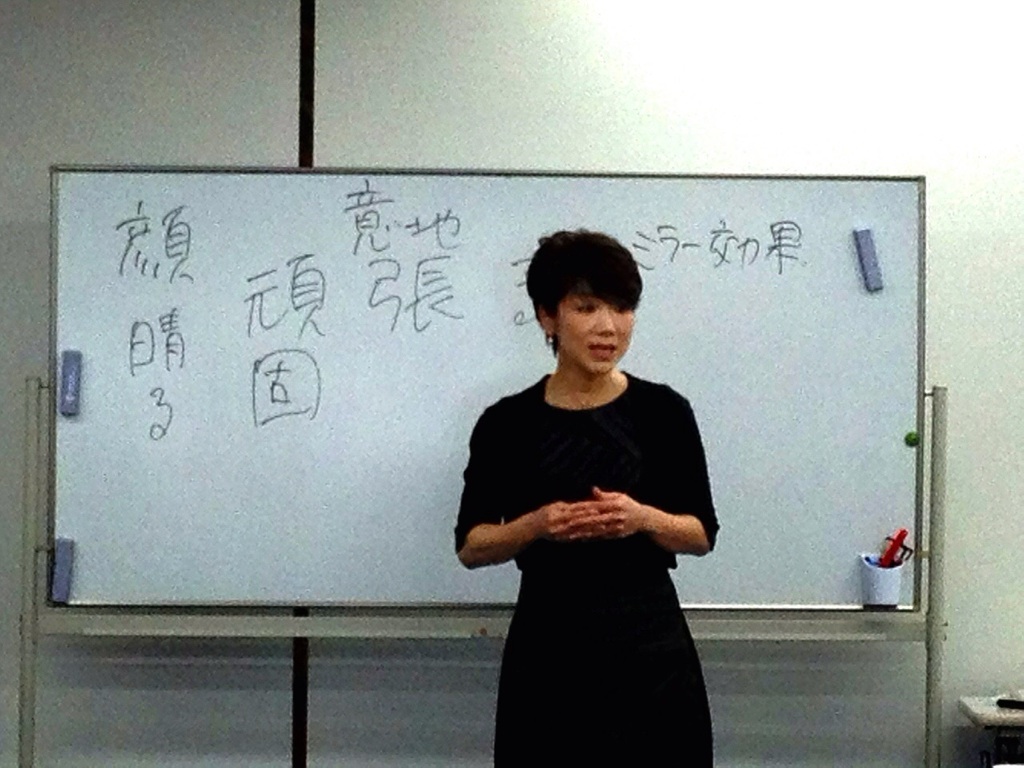 顔晴る
頑固
意地
張
ミラー効果